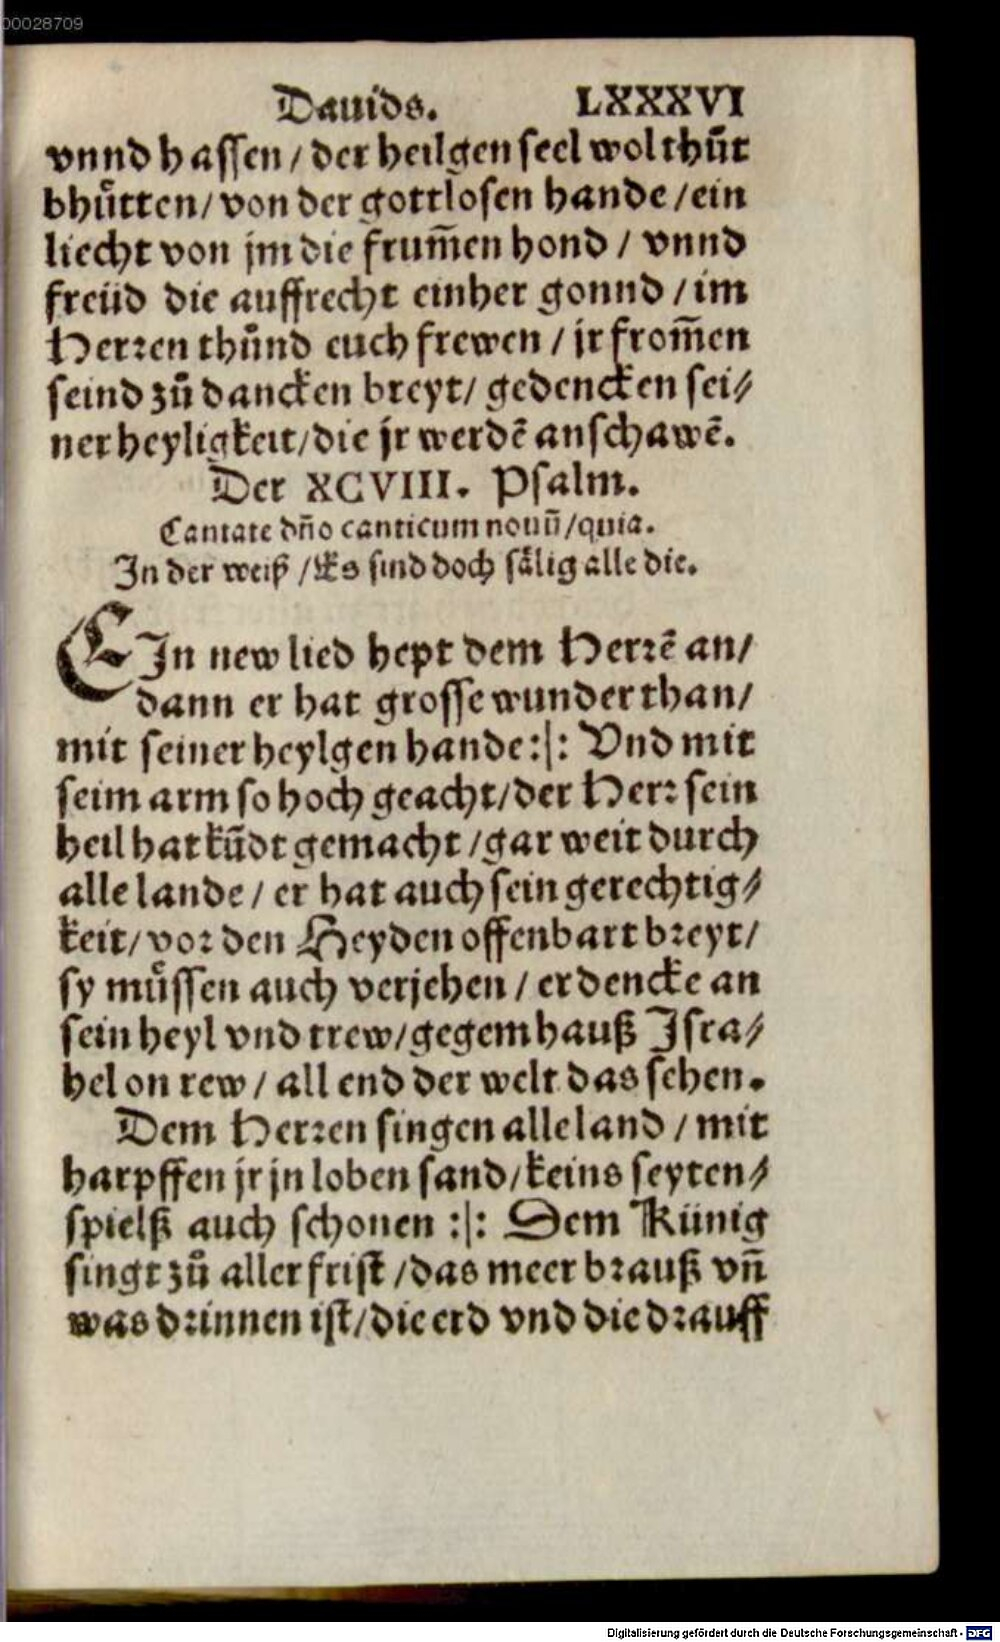 00028709
Dauids. LXXXVI
vnnd hassen / der heilgen seel wol thůt
bhůtten / von der gottlosen hande / ein
liecht von jm die frum̃en hond / vnnd
freüd die auffrecht einher gonnd / im
Herren thůnd euch frewen / jr from̃en
seind zů dancken breyt / gedencken sei⸗
ner heyligkeit / die jr werdẽ anschawẽ.
Der XCVIII. Psalm.
Cantate dño canticum nouũ / quia.
In der weiß / Es sind doch sålig alle die.
EIn new lied hept dem Herrẽ an /
dann er hat grosse wunder than /
mit seiner heylgen hande :|: Vnd mit
seim arm so hoch geacht / der Herr sein
heil hat kũdt gemacht / gar weit durch
alle lande / er hat auch sein gerechtig⸗
keit / vor den Heyden offenbart breyt /
sy můssen auch verjehen / er dencke an
sein heyl vnd trew / gegem hauß Isra⸗
hel on rew / all end der welt das sehen.
Dem Herren singen alle land / mit
harpffen jr jn loben sand / keins seyten⸗
spielß auch schonen :|: Dem Künig
singt zů aller frist / das meer brauß vñ
was drinnen ist / die erd vnd die drauff
Digitalisierung gefördert durch die Deutsche Forschungsgemeinschaft - DFG